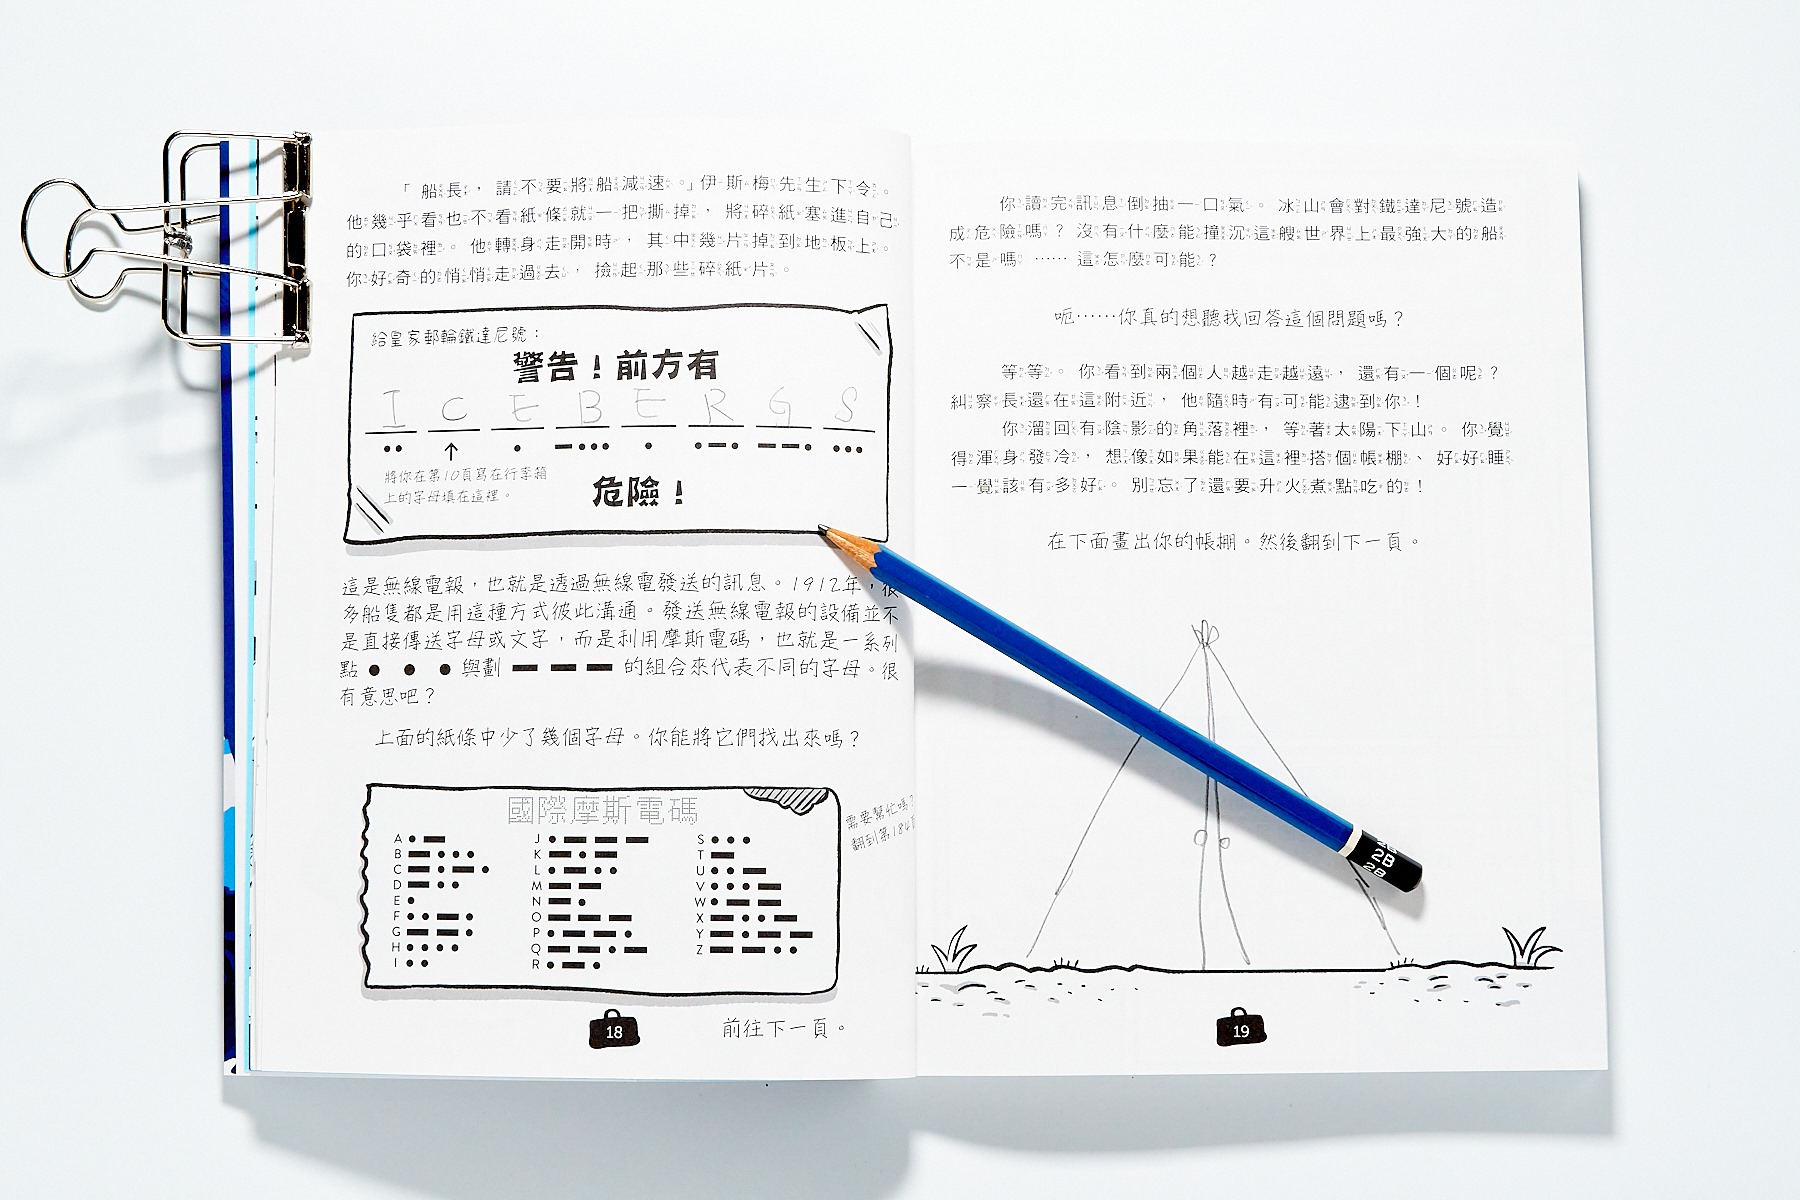 「船長，請不要將船減速。」伊斯梅先生下令。
他幾乎看也不看紙條就一把撕掉，將碎紙塞進自己
的口袋裡。他轉身走開時，其中幾片掉到地板上。
你好奇的悄悄走過去，撿起那些碎紙片。
給皇家郵輪鐵達尼號：
警告！前方有
I C E B E R G S
●● ↑ ● ━●●● ● ●━● ━━● ●●●
將你在第10頁寫在行李箱
上的字母填在這裡。
危險！
這是無線電報，也就是透過無線電發送的訊息。1912年，很
多船隻都是用這種方式彼此溝通。發送無線電報的設備並不
是直接傳送字母或文字，而是利用摩斯電碼，也就是一系列
點 ● ● ● 與劃 ━ ━ ━ 的組合來代表不同的字母。很
有意思吧？
上面的紙條中少了幾個字母。你能將它們找出來嗎？
國際摩斯電碼
A ●━
B ━●●●
C ━●━●
D ━●●
E ●
F ●●━●
G ━━●
H ●●●●
I ●●
J ●━━━
K ━●━
L ●━●●
M ━━
N ━●
O ━━━
P ●━━●
Q ━━●━
R ●━●
S ●●●
T ━
U ●●━
V ●●●━
W ●━━
X ━●●━
Y ━●━━
Z ━━●●
需要幫忙嗎？
翻到第184頁
18
前往下一頁。
你讀完訊息倒抽一口氣。冰山會對鐵達尼號造
成危險嗎？沒有什麼能撞沉這艘世界上最強大的船
不是嗎……這怎麼可能？
呃……你真的想聽我回答這個問題嗎？
等等。你看到兩個人越走越遠，還有一個呢？
糾察長還在這附近，他隨時有可能逮到你！
你溜回有陰影的角落裡，等著太陽下山。你覺
得渾身發冷，想像如果能在這裡搭個帳棚、好好睡
一覺該有多好。別忘了還要升火煮點吃的！
在下面畫出你的帳棚。然後翻到下一頁。
2B
2B
19